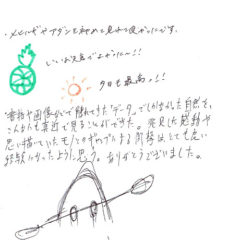 ・メヒルギやアダンを初めて見れて良かったです。
いいお天気でよかった〜!!
今日も最高っ!!
・書籍や画像などで触れてきた"データ"でしかなかった自然を、
こんなにも真近で見ることができた。発見した感動や
思い描いていたモノとのギャップによる衝撃は、とても良い
経験になったように思う。ありがとうございました。